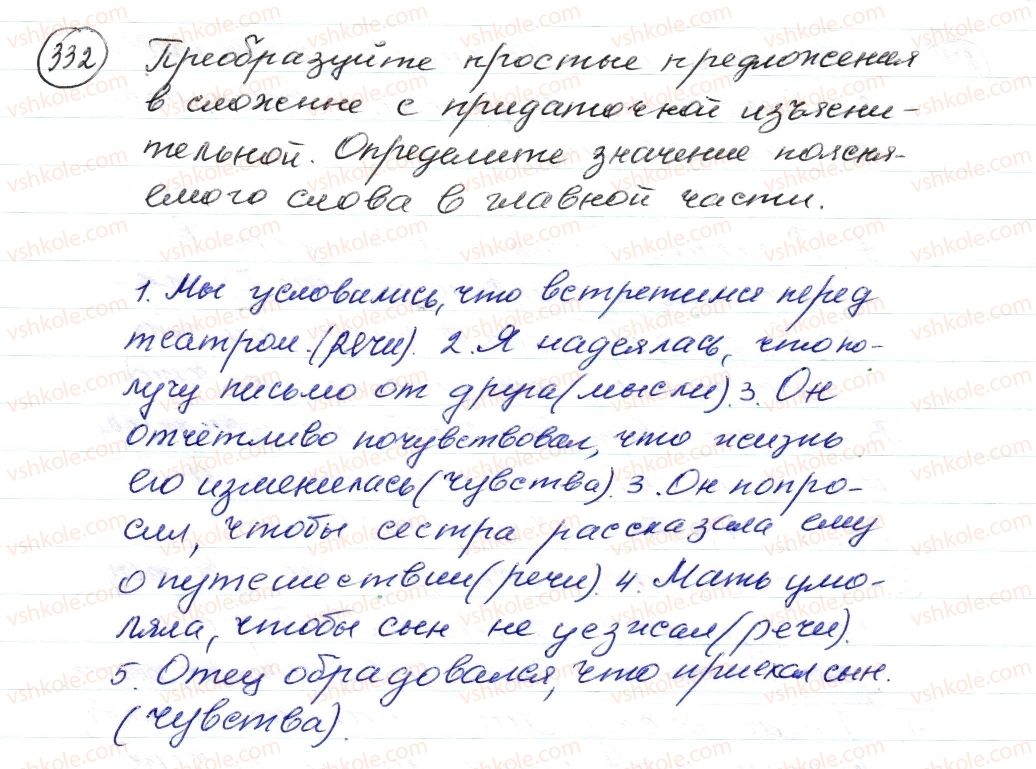 332 Преобразуйте простые предложения
в сложные с придаточной изъясни-
тельной. Определите значение поясня-
емого слова в главной части.
1. Мы условались, что встретимся перед
театром. (речи). 2. Я надеялась, что по-
лучу письмо от друга (мысли). 3. Он
отчётливо почувствовал, что жизнь
его изменилась (чувства). 3. Он попро-
сил, чтобы сестра рассказала ему
о путешествии (речи). 4. Мать умо-
ляла, чтобы сын не уезжал (речи).
5. Отец обрадовался, что приехал сын.
(чувства).